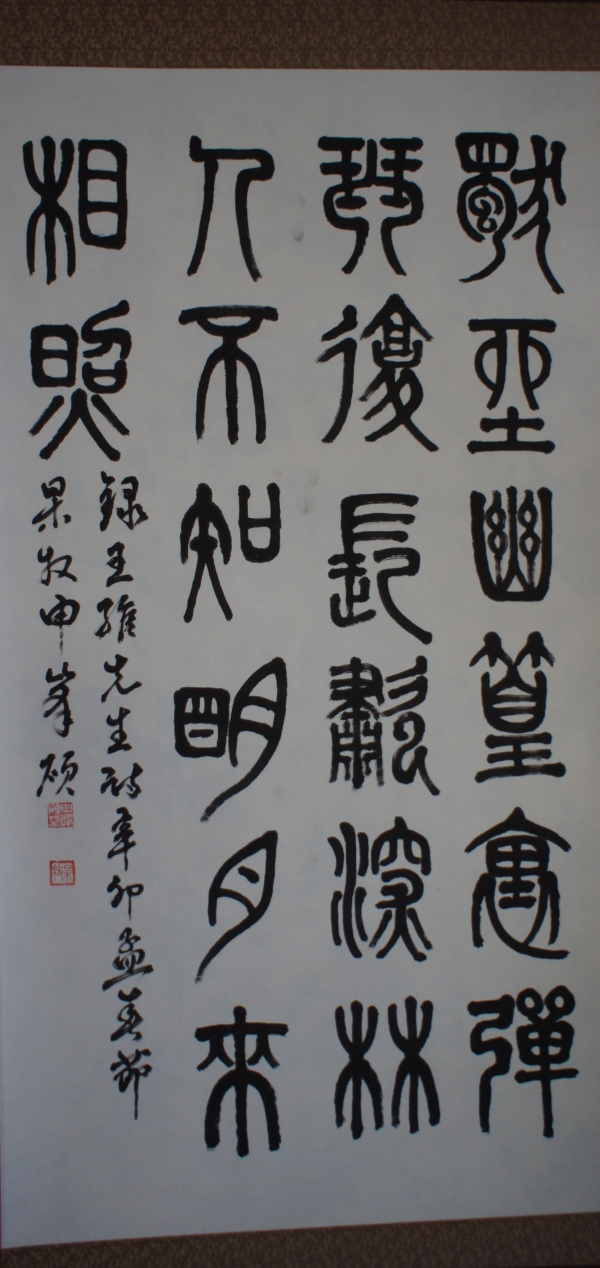 獨坐幽篁裏彈
琴復長嘯深林
人不知明月來
相照
錄王維先生詩辛卯孟春節
杲牧申峯碩